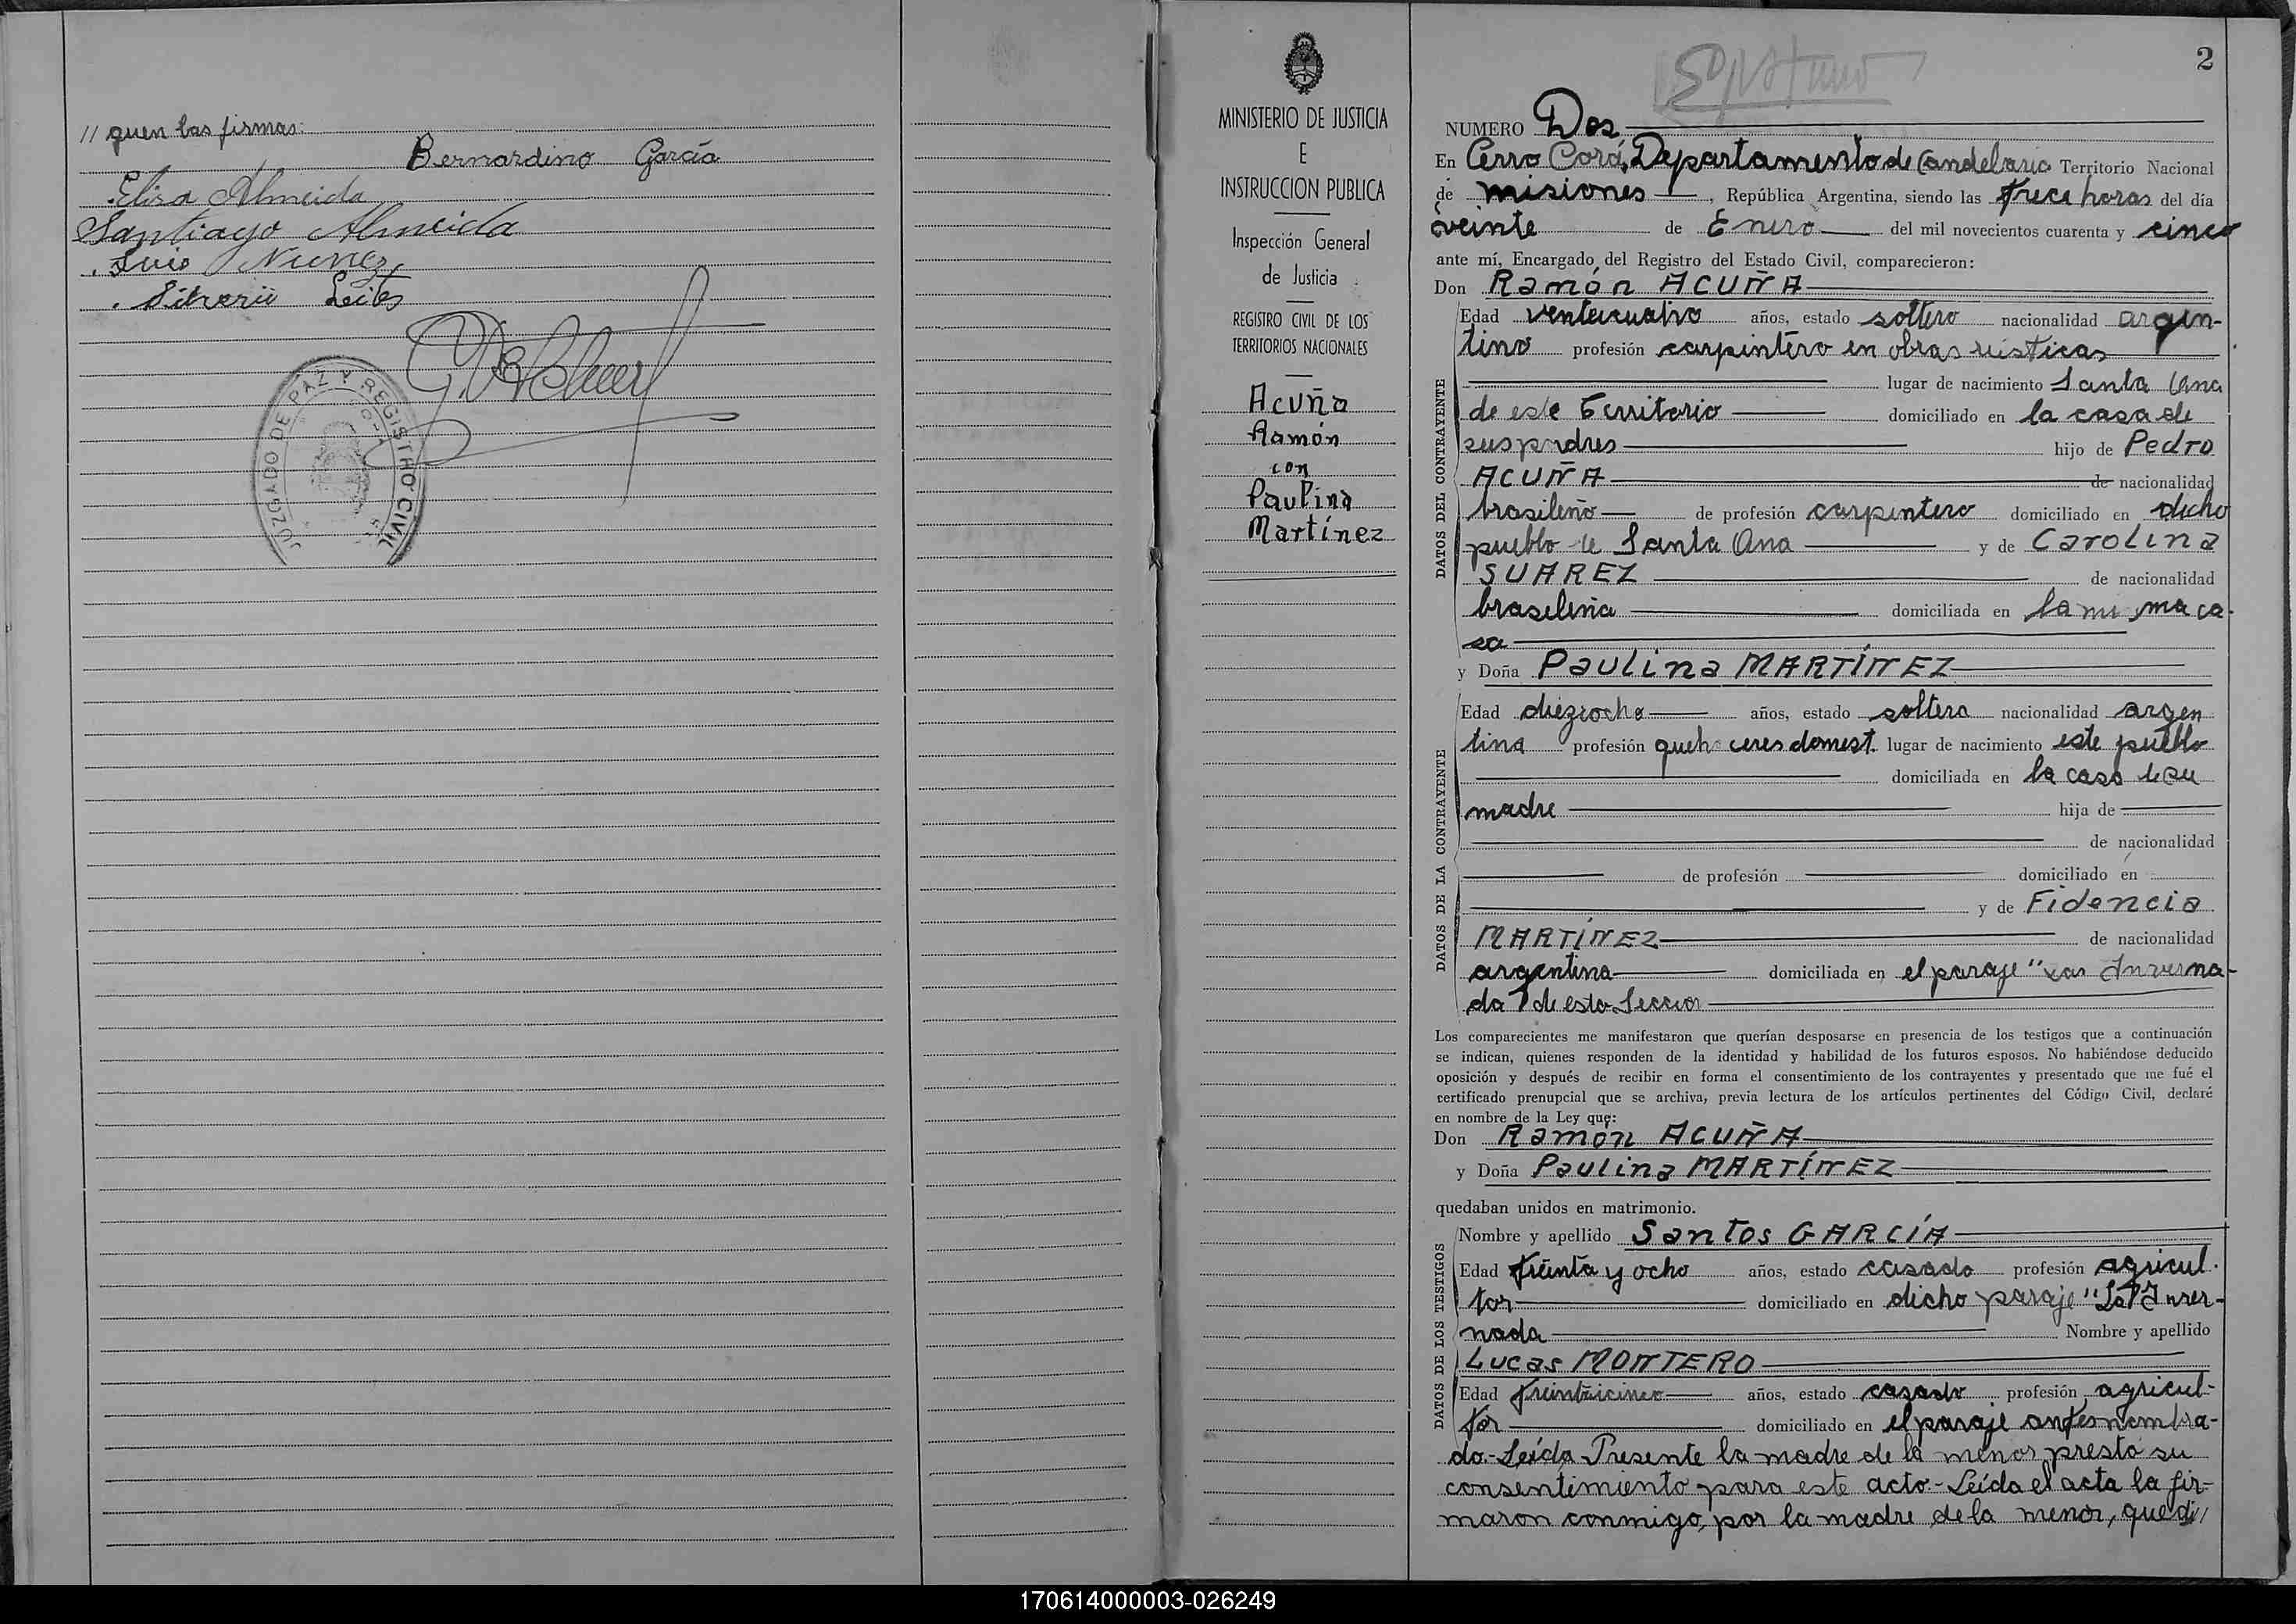 // quen las firmas:
Bernardino García
Elisa Almeida
Santiago Almeida
Luis Nuñez
JUZGADO DE PAZ Y REGISTRO CIVIL
MINISTERIO DE JUSTICIA
E
INSTRUCCION PUBLICA
Inspección General
de Justicia
REGISTRO CIVIL DE LOS
TERRITORIOS NACIONALES
Acuña
Ramón
con
Paulina
Martínez
2
NUMERO Dos
En Cerro Corá, Departamento de Candelaria Territorio Nacional
de misiones, República Argentina, siendo las trece horas del día
veinte de Enero del mil novecientos cuarenta y cinco
ante mí, Encargado del Registro del Estado Civil, comparecieron:
Don Ramón ACUÑA
DATOS DEL CONTRAYENTE
Edad venticuatro años, estado soltero nacionalidad argen-
tino profesión carpintero en obras rústicas
lugar de nacimiento Santa Ana
de este territorio domiciliado en la casa de
sus padres hijo de Pedro
ACUÑA de nacionalidad
brasileño de profesión carpintero domiciliado en dicho
pueblo de Santa Ana y de Carolina
SUAREZ de nacionalidad
brasileña domiciliada en la misma ca-
sa
y Doña Paulina MARTÍNEZ
DATOS DE LA CONTRAYENTE
Edad dieziocho años, estado soltera nacionalidad argen
tina profesión quehaceres domest. lugar de nacimiento este pueblo
domiciliada en la casa de su
madre hija de
de nacionalidad
de profesión domiciliado en
y de Fidencia
MARTÍNEZ de nacionalidad
argentina domiciliada en el paraje "La Inverna-
da" de esta Sección
Los comparecientes me manifestaron que querían desposarse en presencia de los testigos que a continuación
se indican, quienes responden de la identidad y habilidad de los futuros esposos. No habiéndose deducido
oposición y después de recibir en forma el consentimiento de los contrayentes y presentado que me fué el
certificado prenupcial que se archiva, previa lectura de los artículos pertinentes del Código Civil, declaré
en nombre de la Ley que:
Don Ramón ACUÑA
y Doña Paulina MARTÍNEZ
quedaban unidos en matrimonio.
DATOS DE LOS TESTIGOS
Nombre y apellido Santos GARCÍA
Edad treinta y ocho años, estado casado profesión agricul-
tor domiciliado en dicho paraje "La Inver-
nada Nombre y apellido
Lucas MONTERO
Edad treintaicinco años, estado casado profesión agricul-
tor domiciliado en el paraje antesnombra-
do.-Leída Presente la madre de la menor prestó su
consentimiento para este acto.-Leída el acta la fir-
maron conmigo, por la madre de la menor, que di//
170614000003-026249